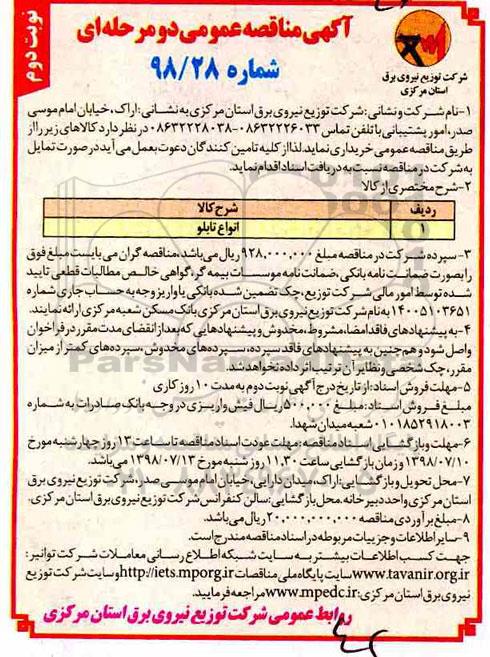 نوبت دوم
آگهی مناقصه عمومی دو مرحله‌ای
شماره ۹۸/۲۸
شرکت توزیع نیروی برق
استان مرکزی
۱-نام شرکت و نشانی: شرکت توزیع نیروی برق استان مرکزی به نشانی: اراک، خیابان امام موسی
صدر، امور پشتیبانی با تلفن تماس ۰۸۶۳۲۲۲۶۰۳۳-۰۸۶۳۲۲۲۸۰۳۸ در نظر دارد کالاهای زیر را از
طریق مناقصه عمومی خریداری نماید. لذا از کلیه تامین کنندگان دعوت بعمل می آید در صورت تمایل
به شرکت در مناقصه نسبت به دریافت اسناد اقدام نماید.
۲-شرح مختصری از کالا
ردیف شرح کالا
۱ انواع تابلو
۳-سپرده شرکت در مناقصه مبلغ ۹۲۸,۰۰۰,۰۰۰ ریال می باشد، مناقصه گران می بایست مبلغ فوق
را بصورت ضمانت نامه بانکی، ضمانت نامه موسسات بیمه گر، گواهی خالص مطالبات قطعی تایید
شده توسط امور مالی شرکت توزیع، چک تضمین شده بانکی یا واریز وجه به حساب جاری شماره
۱۴۰۰۵۱۰۳۶۵۱ به نام شرکت توزیع برق استان مرکزی بانک مسکن شعبه مرکزی ارائه نمایند.
۴-به پیشنهادهای فاقد امضا، مشروط، مخدوش و پیشنهادهایی که بعد از انقضای مدت مقرر در فراخوان
واصل شود و هم چنین به پیشنهادهای فاقد سپرده، سپرده های مخدوش، سپرده های کمتر از میزان
مقرر، چک شخصی و نظایر آن ترتیب اثر داده نخواهد شد.
۵-مهلت فروش اسناد: از تاریخ درج آگهی نوبت دوم به مدت ۱۰ روز کاری
مبلغ فروش اسناد: مبلغ ۵۰۰,۰۰۰ ریال فیش واریزی در وجه بانک صادرات به شماره
۰۱۰۱۸۵۲۹۱۸۰۰۳ شعبه میدان شهدا.
۶-مهلت و بازگشایی اسناد مناقصه: مهلت عودت اسناد مناقصه تا ساعت ۱۳ روز چهارشنبه مورخ
۱۳۹۸/۰۷/۱۰ و زمان بازگشایی ساعت ۱۱,۳۰ روز شنبه مورخ ۱۳۹۸/۰۷/۱۳ می باشد.
۷-محل تحویل و بازگشایی: اراک، میدان دارایی، خیابان امام موسی صدر، شرکت توزیع نیروی برق
استان مرکزی واحد دبیرخانه. محل بازگشایی: سالن کنفرانس شرکت توزیع نیروی برق استان مرکزی.
۸-مبلغ برآوردی مناقصه ۲۰,۰۰۰,۰۰۰,۰۰۰ ریال می باشد.
۹-سایر اطلاعات و جزییات مربوطه در اسناد مناقصه مندرج است.
جهت کسب اطلاعات بیشتر به سایت شبکه اطلاع رسانی معاملات شرکت توانیر:
www.tavanir.org.ir سایت پایگاه ملی مناقصات http://iets.mporg.ir و سایت شرکت توزیع
نیروی برق استان مرکزی: www.mpedc.ir مراجعه فرمایید.
روابط عمومی شرکت توزیع نیروی برق استان مرکزی